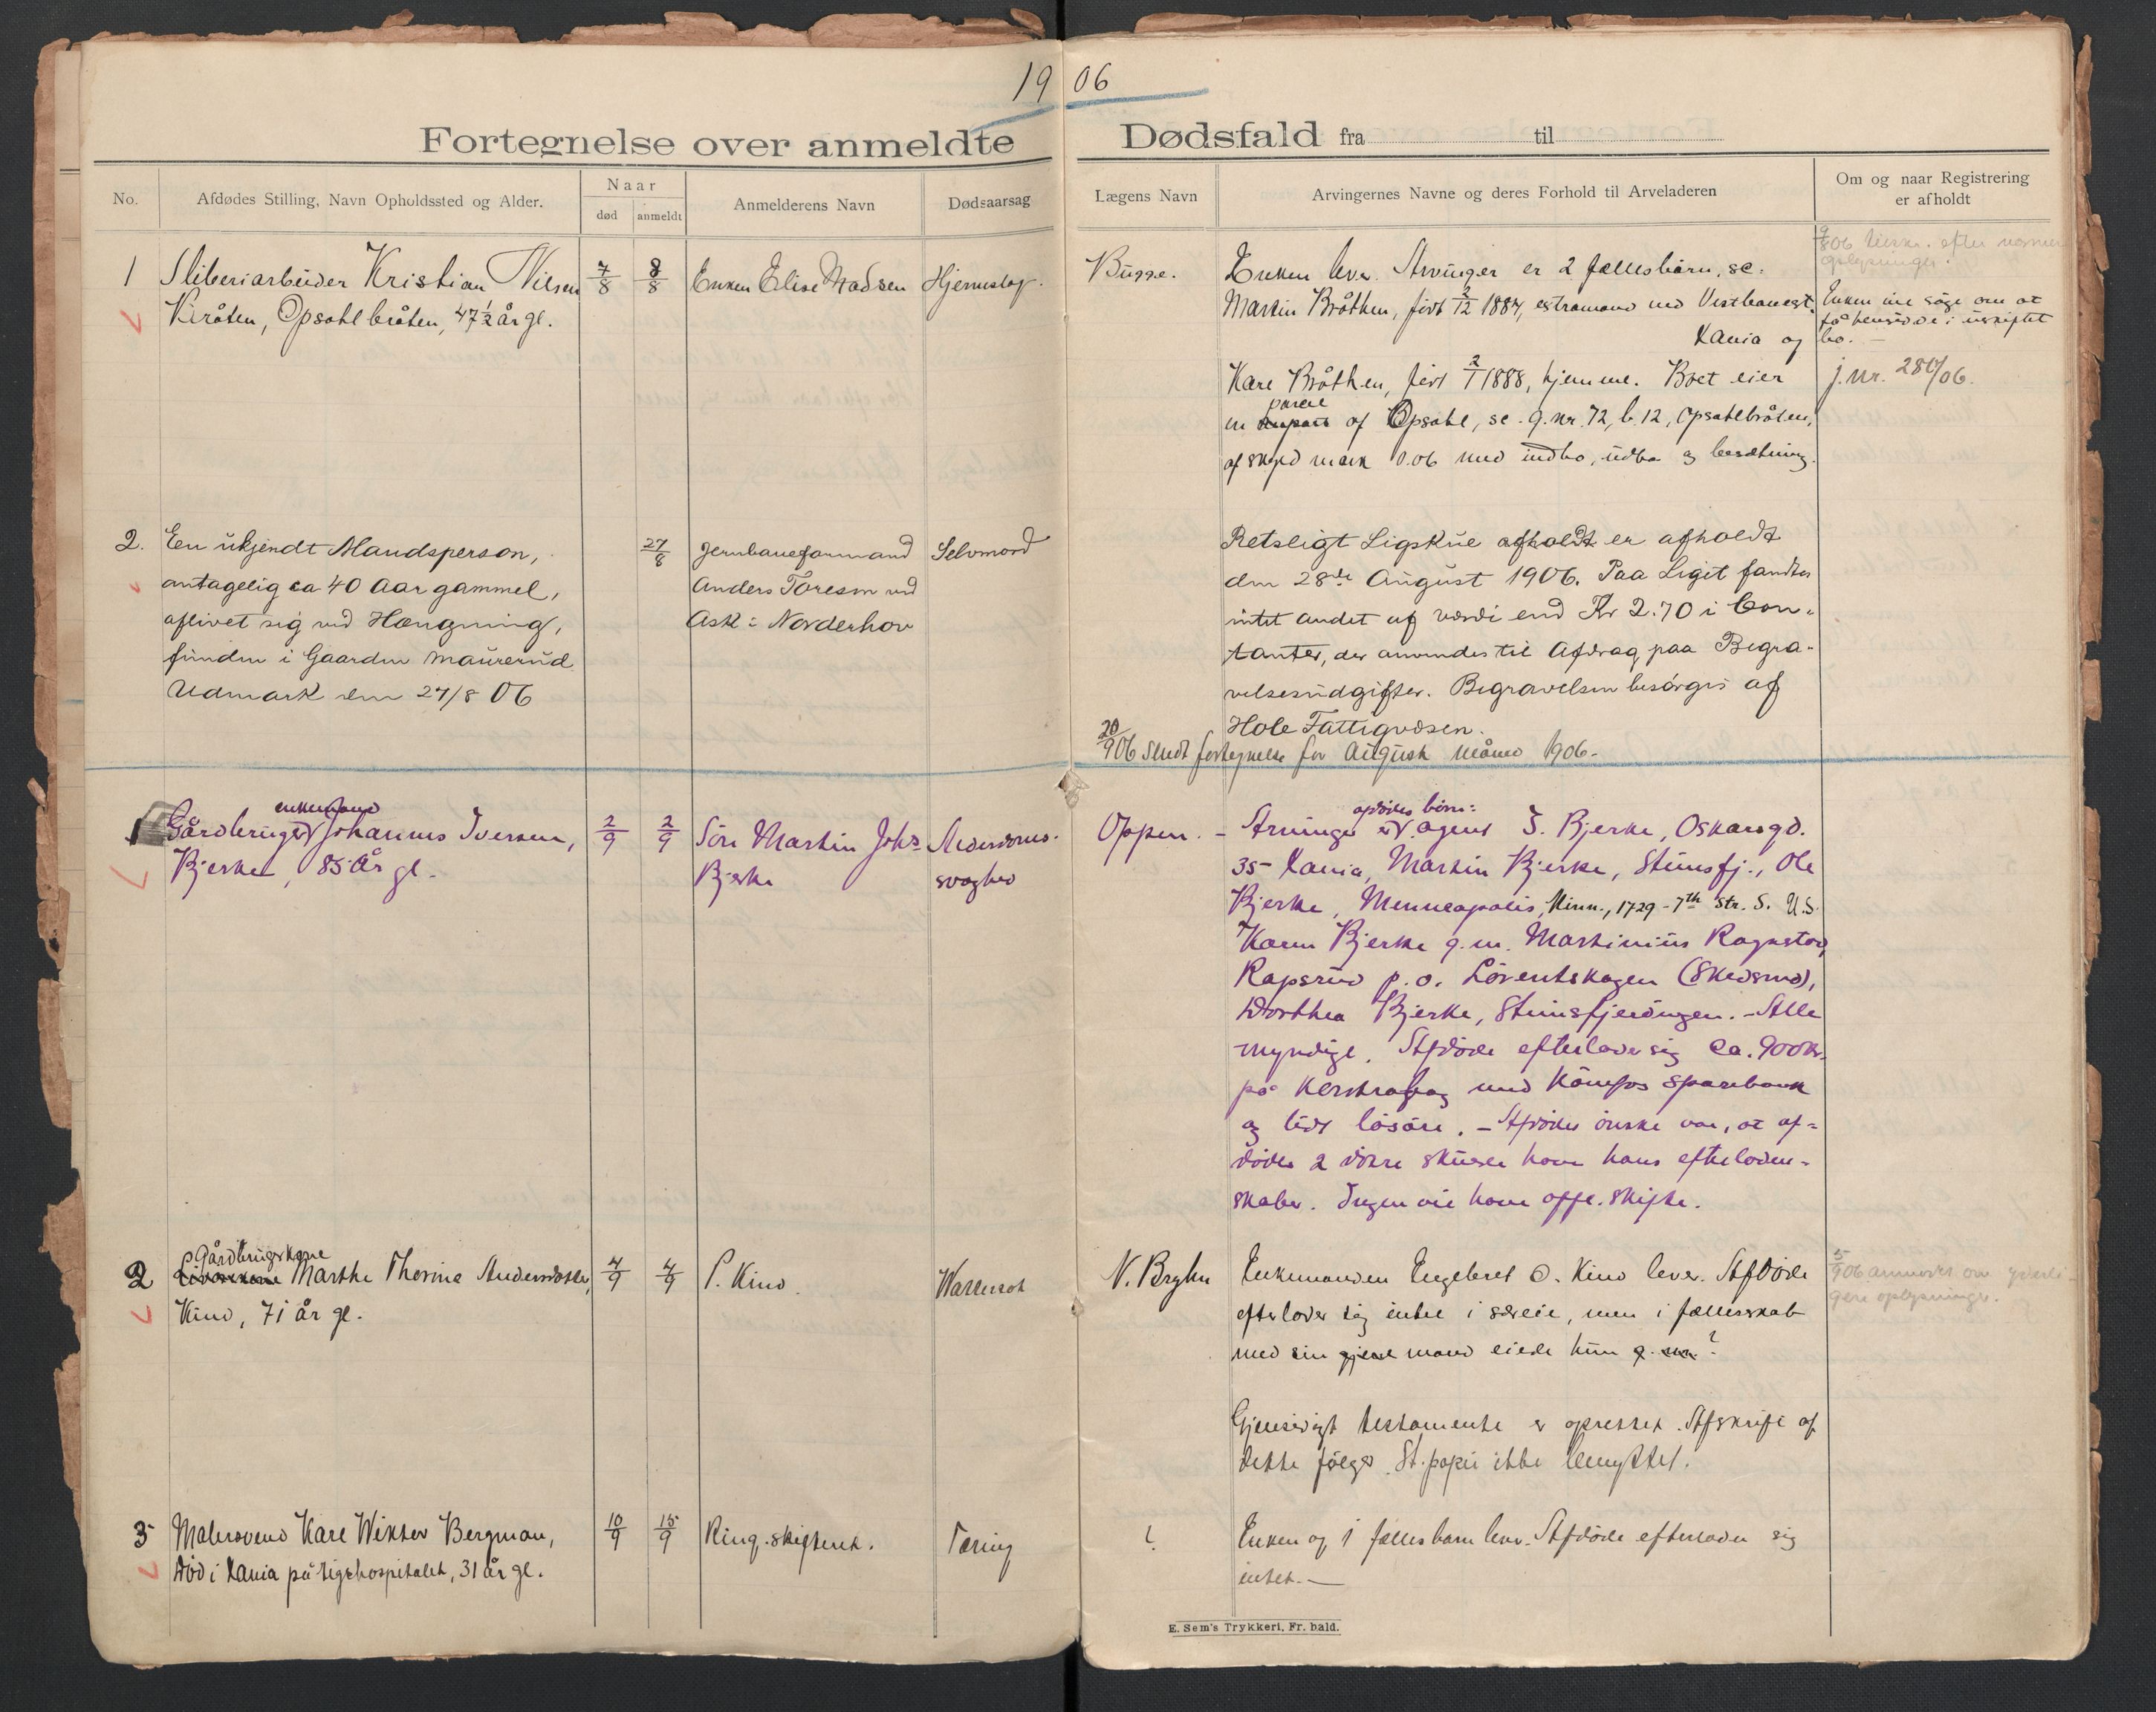 1906
Fortegnelse over anmeldte Dødsfald fra til
No.
Afdødes Stilling, Navn Opholdssted og Alder.
Naar
død
anmeldt
Anmelderens Navn
Dødsaarsag
Lægens Navn
Arvingernes Navne og deres Forhold til Arveladeren
Om og naar Registrering
er afholdt
1 Sliberiarbeider Kristian Nilsen
Bråten, Opsahlbråten, 47½ år gl.
7/8
8/8
Enken Elise Madsen
Hjerneslag.
Bugge.
Enken lever. Arvinger er 2 fællesbarn, se:
Martin Bråthen, født 2/12 1884, extramand ved Vestbanen
Kania og
Kare Bråthen, født 2/1 1888, hjemme. Boet eier
parcel
en af Opsahl, se. g.nr. 72, b. 12, Opsahlbråten,
af skyld mark 0.06 med indbo, udbo og besætning.
9/8 06 efter
oplysninger.
Enken vil søge om at
få hensidde i uskiftet
bo. –
j.nr. 280/06.
2. En ukjendt Mandsperson,
antagelig ca 40 Aar gammel,
aflivet sig ved Hængning,
funden i Gaarden Maurerud
Udmark den 27/8 06
27/8
Jernbaneformand
Anders Toresen ved
Ask i Norderhov
Selvmord
Retsligt Ligskue afholdt er afholdt
den 28de August 1906. Paa Liget fandtes
intet andet af værdi end Kr 2.70 i Con-
tanter, der anvendes til Afdrag paa Begra-
velsesudgifter. Begravelsen besørges af
Hole Fattigvæsen.
20/9 06 Sendt fortegnelse for August måned 1906.
1 enkemand
Gårdbruger Johannes Iversen,
Bjerke, 85 år gl.
2/9
2/9
Søn Martin Johs.
Bjerke
Alderdoms-
svaghed
Oppen.
afdødes børn:
– Arvinger er agent I. Bjerke, Oskarsgd.
35 Kania, Martin Bjerke, Stensfj., Ole
Bjerke, Menneapolis, Minn., 1729 - 7th Str. S. U.S.
Karen Bjerke g.m. Martinius Rognstad,
Rapsrud p.o. Lørentskogen (Skedsmo),
Dorthea Bjerke, Stensfjerdingen. – Alle
myndige. Afdøde efterlader sig ca. 900 kr.
på kontrabog med Hønefos Sparebank
og lidt løsøre. – Afdødes ønske var, at af-
dødes 2 døtre skulde have hans efterladen-
skaber. Ingen vil have offe. skifte.
2 Gårdbrugerkone
Marthe Thorine Andersdatter
Kind, 71 år gl.
4/9
4/9
P. Kind.
Wattersot
N. Bryhn
Enkemanden Engebret O. Kind lever. Afdøde
efterlader sig intet i særeie, men i fællesskab
med sin mand eiede hun g. nr. ?
Gjensidigt testamente er oprettet. Afskrift af
dette følger. St.papir ikke benyttet.
5/9 06 anmodet om yderli-
gere oplysninger.
3 Malersvend Karl Wiktor Bergman,
død i Kania på rigshospitalet, 31 år gl.
10/9
15/9
Ring. skifteret.
Tæring
?
Enken og 1 fællesbarn lever. Afdøde efterlader sig
intet. –
E. Sem's Trykkeri, Fr. hald.